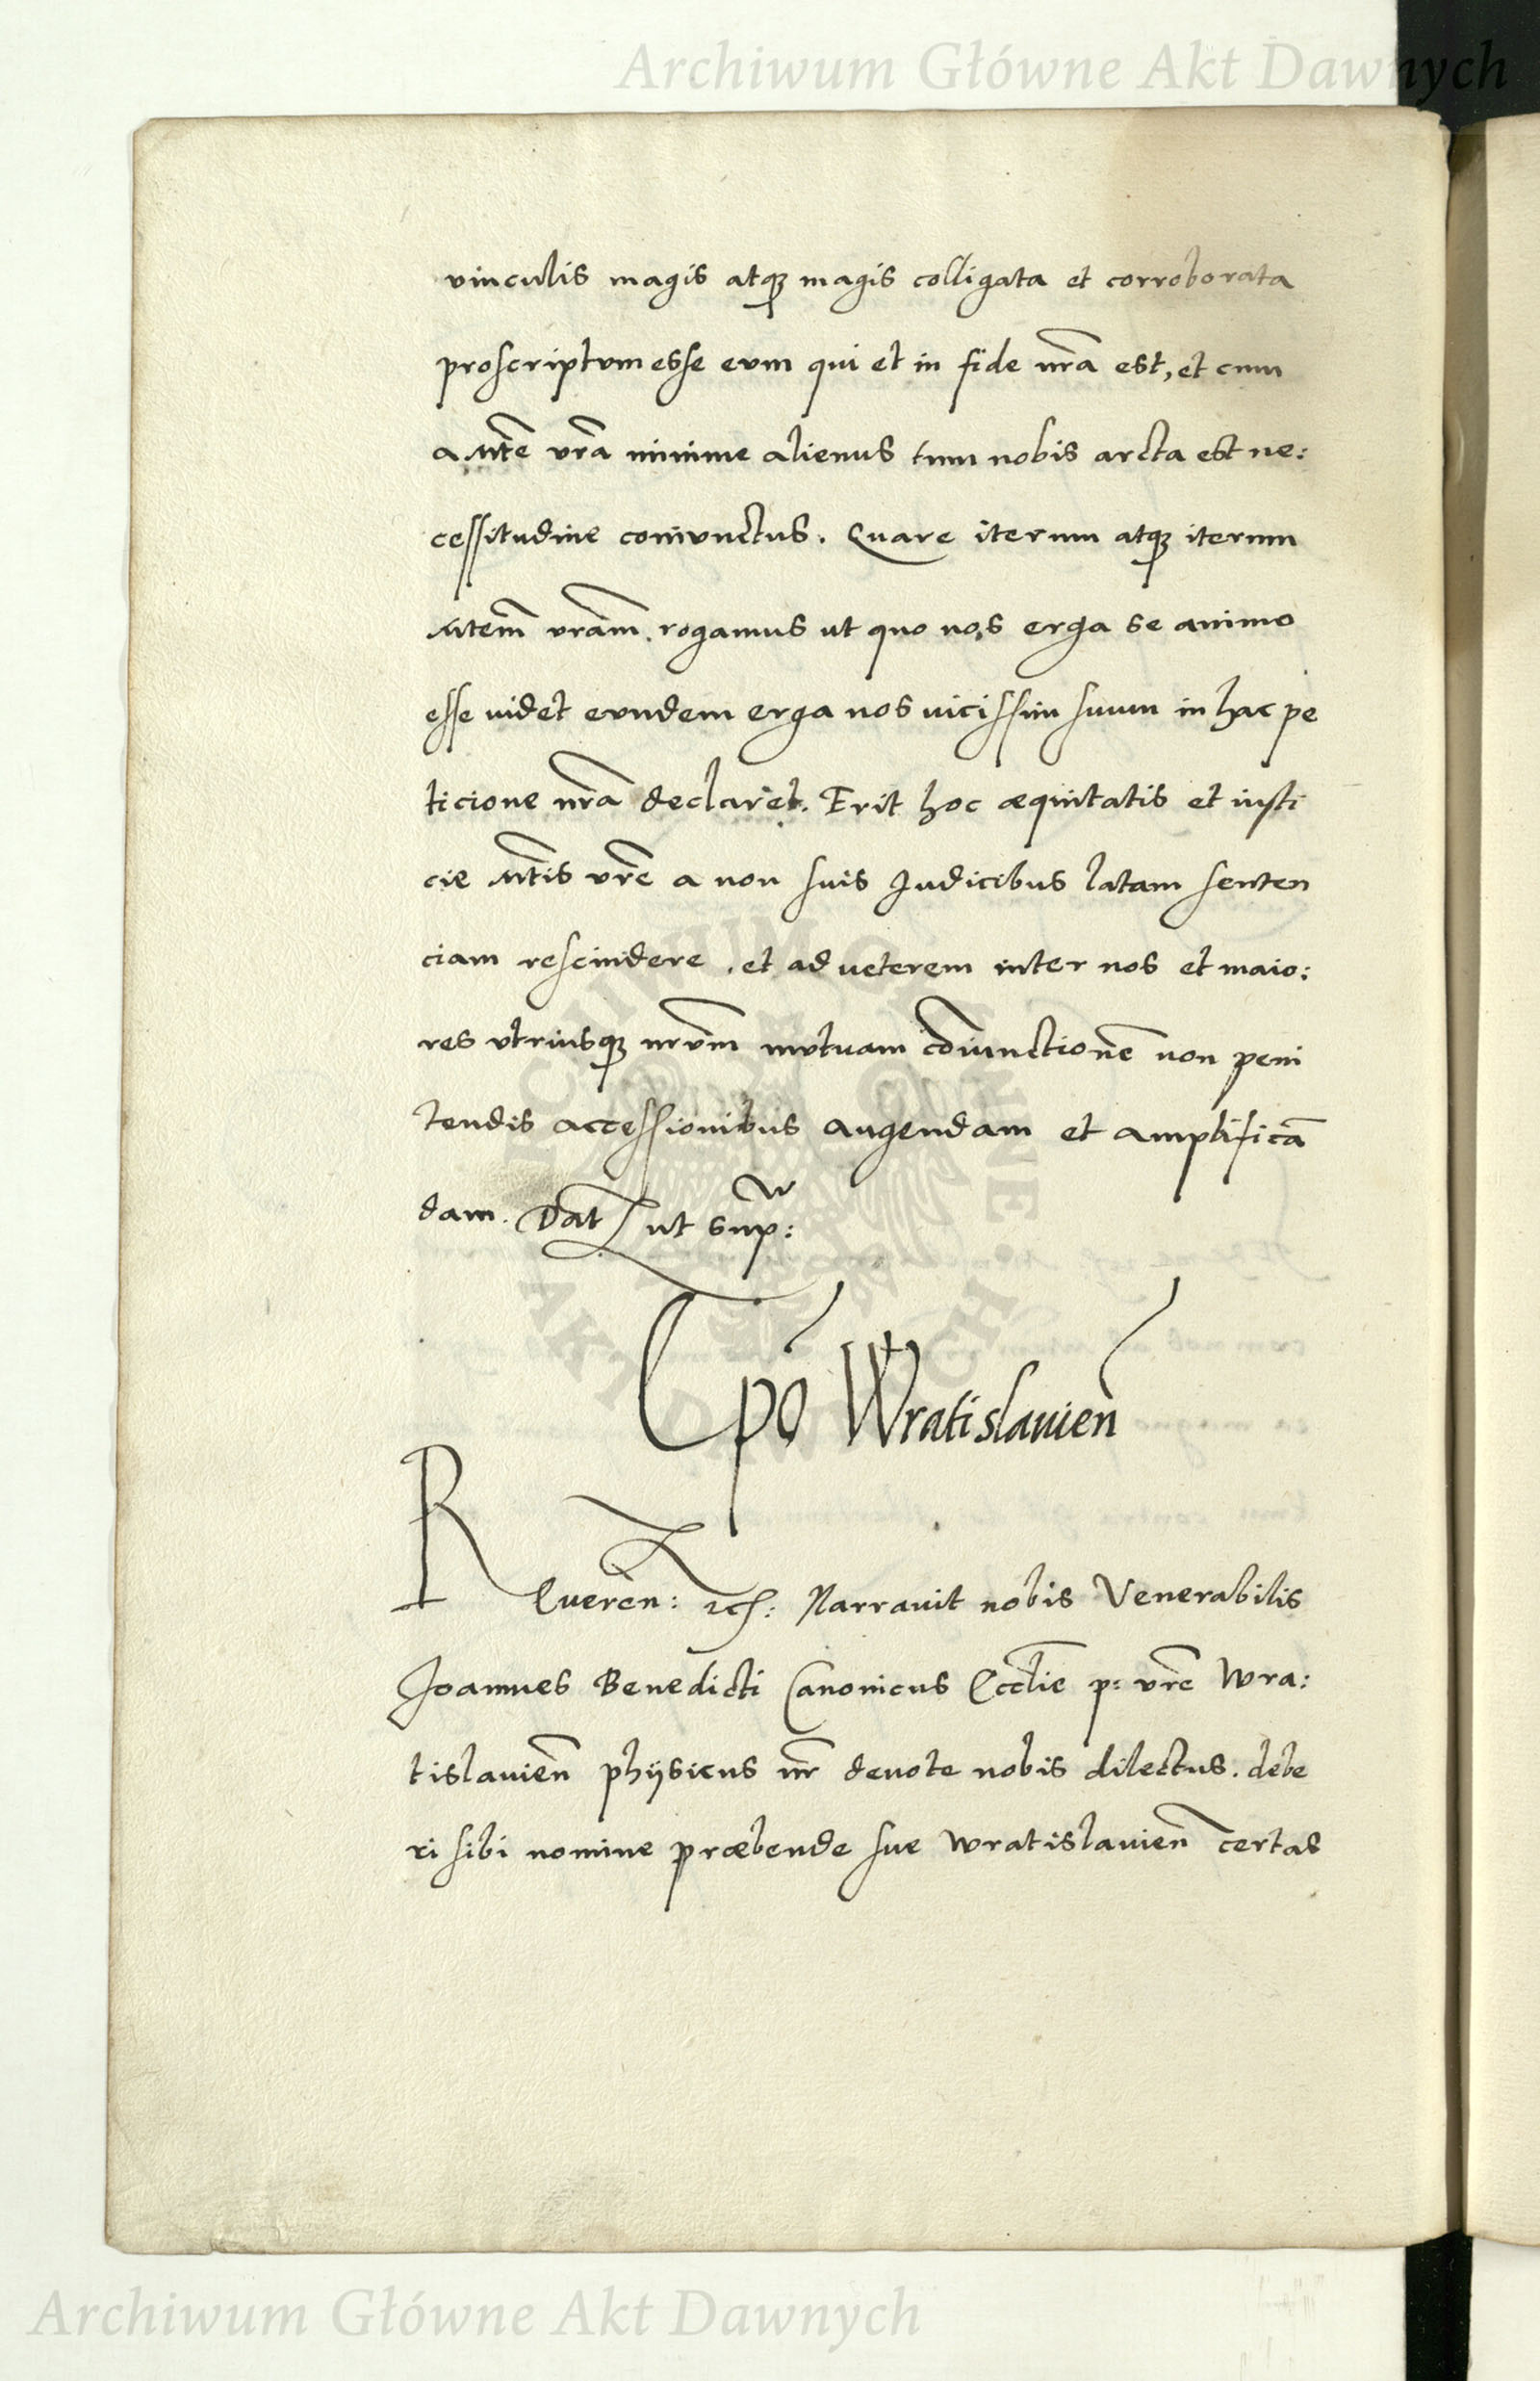 Archiwum Główne Akt Dawnych
vinculis magis atq3 magis colligata et corroborata
proscriptvm esse evm qui et in fide nr̃a est, et cum
a Mte vr̃a minime alienus tum nobis arcta est ne:
cessitudine conivnctus. Quare iterum atq3 iterum
Mtem vr̃am. rogamus ut quo nos erga se animo
esse uidet evndem erga nos uicissim suum in hac pe
ticione nr̃a declaret. Erit hoc æquitatis et iusti
cie Mtis vr̃e a non suis Judicibus latam senten
ciam rescindere . et ad ueterem inter nos et maio:
res vtriusq3 nr̃vm mvtuam cõiunctionẽ non peni
tendis accessionibus augendam et amplificã
dam. Dat ut sup:
Epõ Wratislauień
R Queren: etc: Narrauit nobis Venerabilis
Joannes Benedicti Canonicus Eccl̃ie p: vr̃e Wra:
tislauień phÿsicus nr̃ deuote nobis dilectus. debe
ri sibi nomine præbende sue Wratislauień certas
ARCHIWUM GŁÓWNE AKT DAWNYCH
Archiwum Główne Akt Dawnych